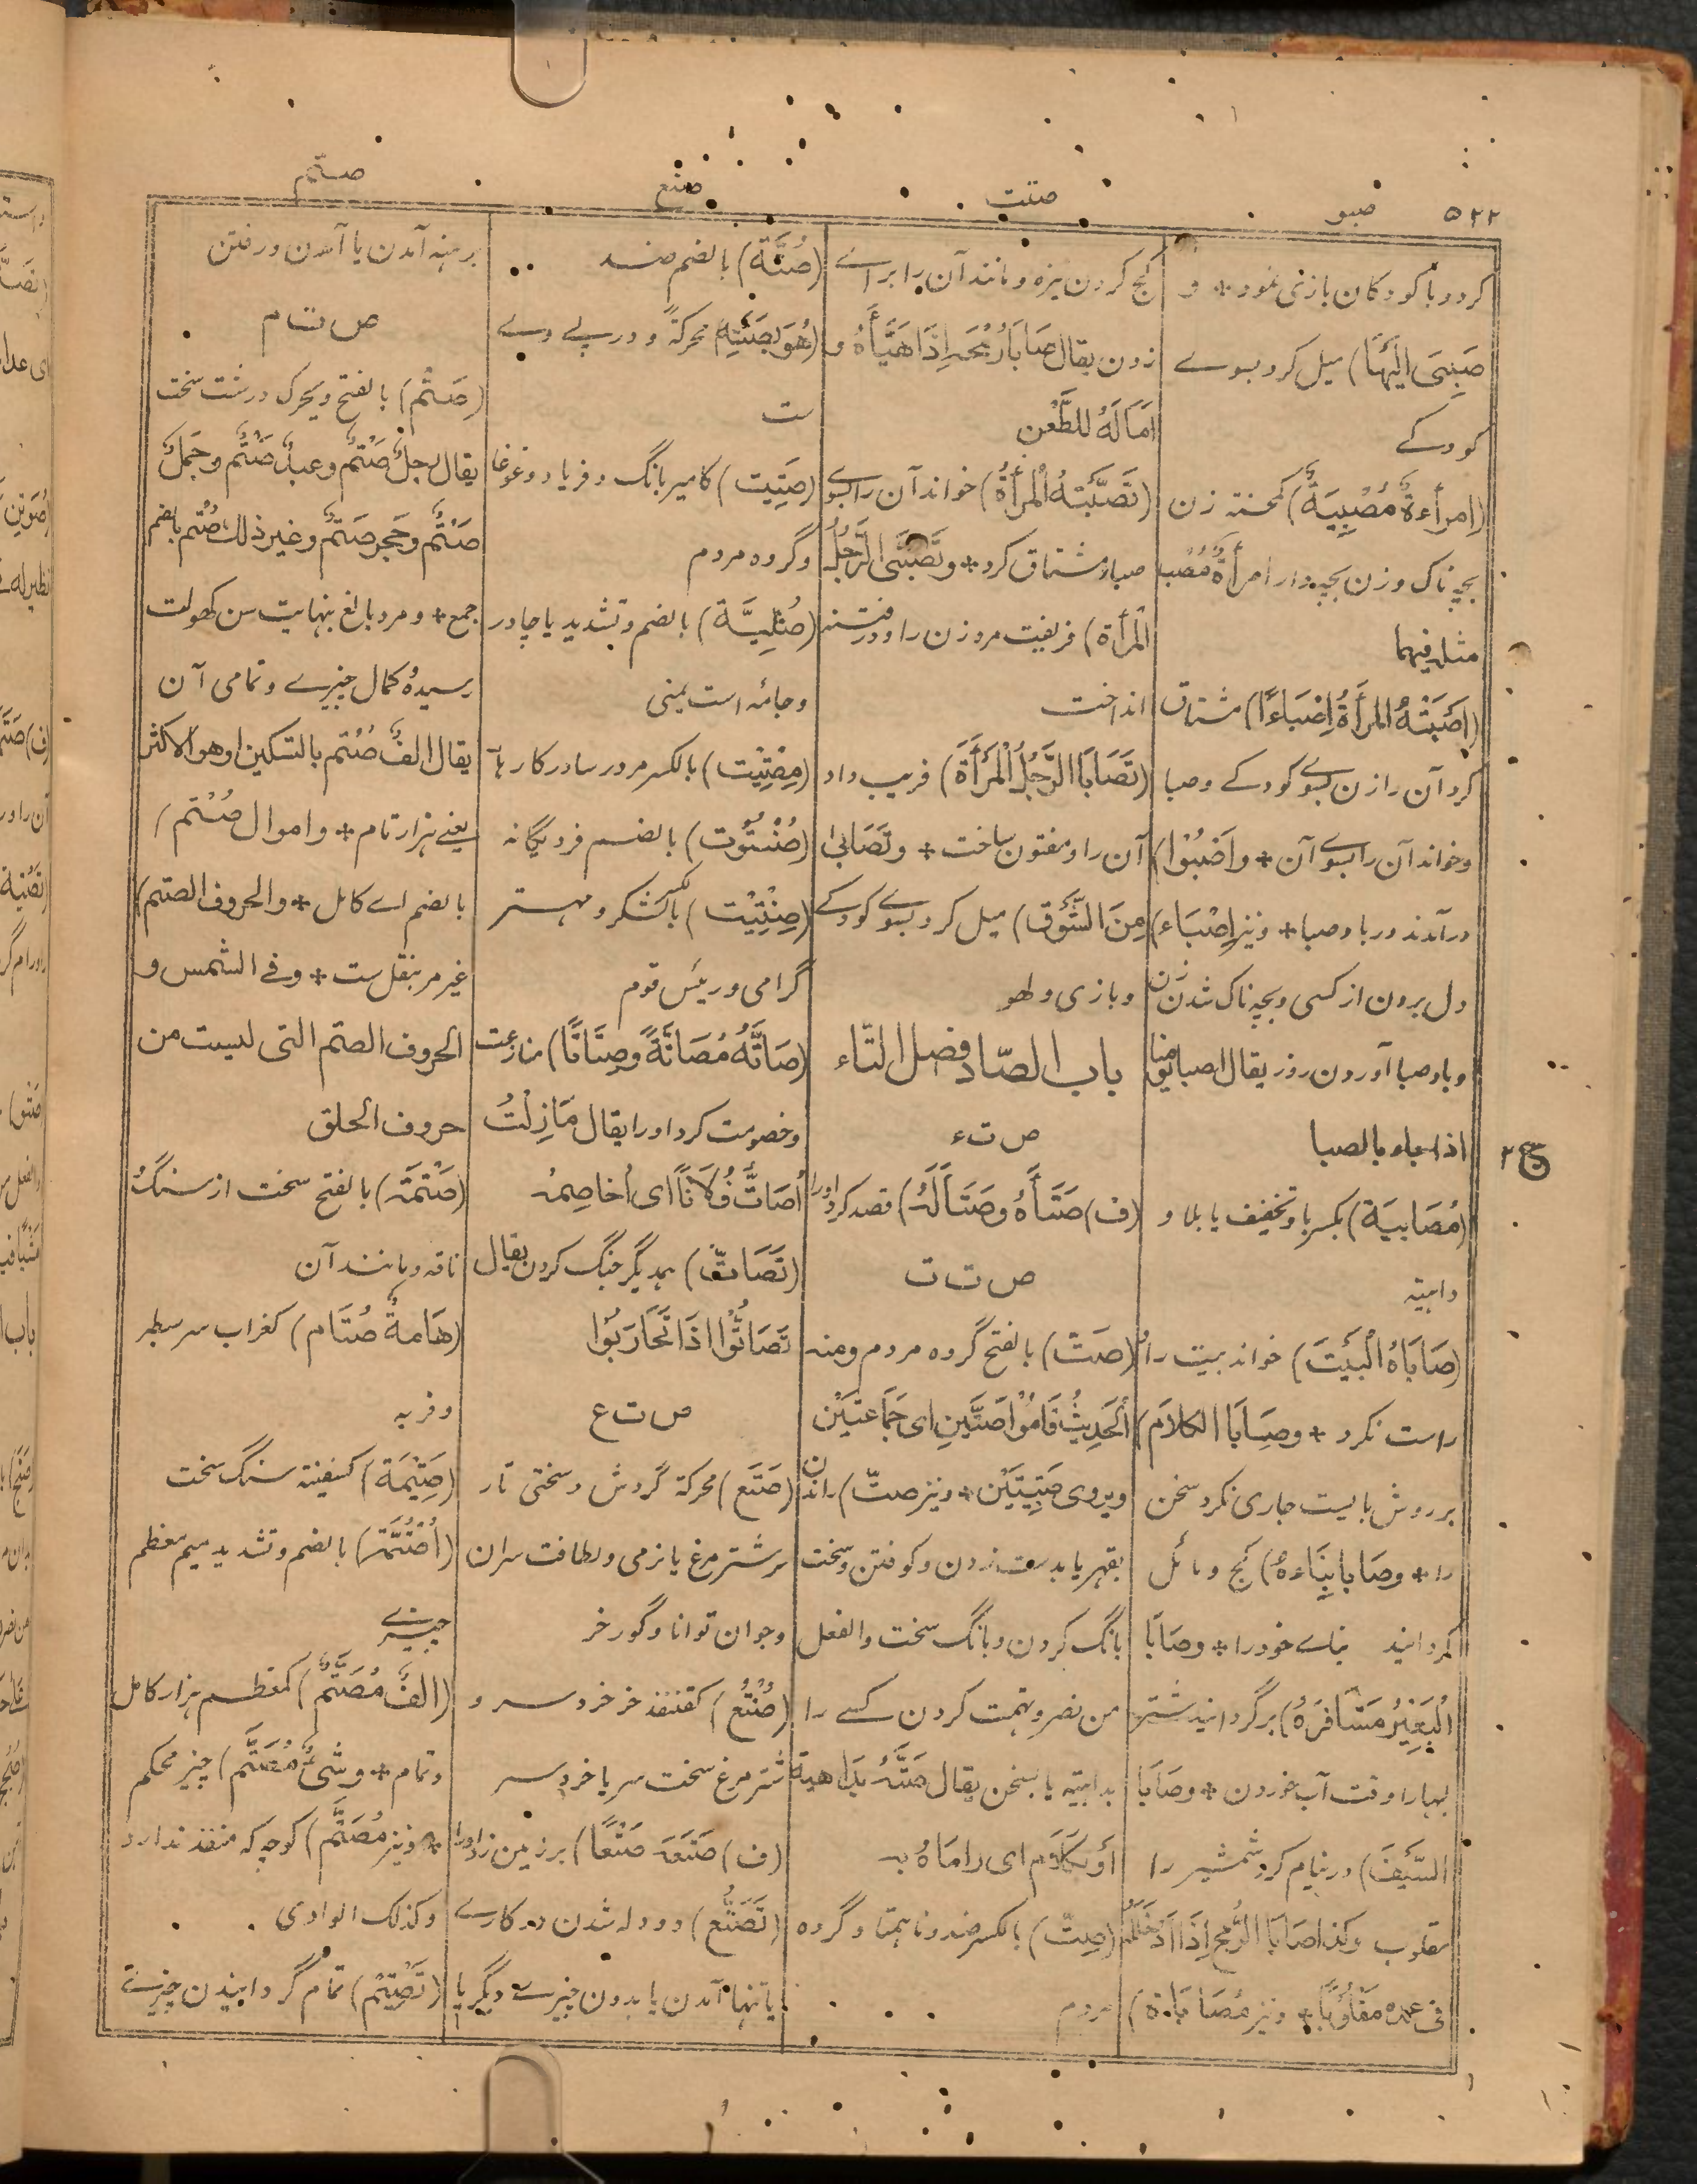 ۵۲۲
صبو
صتت
صتع
صتم
کرد و با کودکان بازی نمود + و
صَبِیَ اِلَیْهَا) میل کرد بسوے
کودکے
(اِمرأةٌ مُصْبِیَةٌ) کمحسنة زن
بچہ ناک و زن بچہ دار امرأةٌ مُصْبٍ
مثله فیهما
(اَصْبَتْهُ المرأَةُ اِصْبَاءً) مشتاق
کرد آن را زن بسوے کودکے و صبا
و خواند آن را بسوے آن + و اَصْبَوْا)
در آمدند در باد صبا + و نیز اِصْبَاء)
دل بردن از کسی و بچہ ناک شدن زن
و باد صبا آوردن روز یقال اصبا یومنا
اذا جاء بالصبا
(مُصَابِیَة) بکسر با و تخفیف یا بلا و
داهیة
(صَابَاهُ الْبَیْتَ) خواند بیت را
راست نکرد + و صَابَا الکلامَ)
بر روش بایست جاری نکرد سخن
را + و صَابَا بِنَاءَهُ) کج و مائل
گردانید بناے خود را + و صَابَا
الْبَعِیْرُ مَشَافِرَهُ) برگردانید شتر
لبہا را وقت آب خوردن + و صَابَا
السَّیْفَ) در نیام کرد شمشیر را
مقلوب و کذا صَابَا الرُّمْحَ اِذَا اَدْخَلَهُ
فی غمده مَقْلُوْبًا + و نیز مُصَابَاة)
کج کردن نیزه و مانند آن را براے
زدن یقال صَابَا رُمْحَهُ اِذَا هَیَّأَهُ و
اَمَالَهُ لِلطَّعْنِ
(تَصَبَّتْهُ الْمَرْأَةُ) خواند آن را بسوے
صبا و مشتاق کرد + و تَصَبَّی الرَّجُلُ
الْمَرْأَةَ) فریفت مرد زن را و در فتنہ
انداخت
(تَصَابَا الرَّجُلُ الْمَرْأَةَ) فریب داد
آن را و مفتون ساخت + و تَصَابٰی
مِنَ الشَّوْق) میل کرد بسوے کودکے
و بازی و لهو
باب الصّاد فصل التّاء
ص ت ء
(ف) صَتَأَهُ و صَتَأَ لَهُ) قصد کرد او را
ص ت ت
(صَتّ) بالفتح گروه مردم و منه
الْحَدِیْثُ قَامُوْا صَتَّیْنِ ای جَمَاعَتَیْنِ
و یروی صَتِیْتَیْنِ + و نیز صتّ) راندن
بقهر یا بدست زدن و کوفتن و سخت
بانگ کردن و بانگ سخت و الفعل
من نصر و تهمت کردن کسے را
بداهیة یا بسخن یقال صَتَّهُ بِدَاهِیَة
اَوْ بِکَلَامٍ ای رامَاهُ بِهِ
(صِتّ) بالکسر ضد و نا همتا و گروه
مردم
(صُتَّة) بالضم ضد
(هُوَ بِصَتَتِهِ) محرکةً و در پے وے
ست
(صَتِیت) کامیر بانگ و فریاد و غوغا
و گروه مردم
(صُتِّیَّة) بالضم و تشدید یا چادر
و جامه است یمنی
(مِصْتِیْت) بالکسر مرد رسا در کارہا
(صُنْتُوت) بالضم فرد یگانہ
(صِنْتِیْت) بالکسر لشکر و مہتر
گرامی و رئیس قوم
(صَاتَّهُ مُصَاتَّةً و صِتَاتًا) منازعت
و خصومت کرد او را یقال مَا زِلْتُ
اُصَاتُّ فُلَانًا ای اُخاصِمُه
(تَصَاتّ) همدیگر جنگ کردن یقال
تَصَاتُّوْا اذَا تَحَارَبُوْا
ص ت ع
(صَتَع) محرکة گردش و سختی تار
سر شتر مرغ یا نرمی و لطافت سر آن
و جوان توانا و گور خر
(صُنْتُع) کقنفذ خر خرد سر و
شتر مرغ سخت سر یا خرد سر
(ف) صَتَعَهُ صَتْعًا) بر زمین زد او را
(تَصَتُّع) دو دلہ شدن در کارے
یا تنہا آمدن یا بدون چیزے دیگر یا
برهنہ آمدن یا آمدن و رفتن
ص ت م
(صَتْم) بالفتح و یحرک درشت سخت
یقال رجلٌ صَتْمٌ و عبدٌ صَتْمٌ و جَمَلٌ
صَتْمٌ و حَجر صَتْمٌ و غیر ذلك صُتْم بالضم
جمع + و مرد بالغ بنہایت سن کهولت
رسیده کمال چیزے و تمامی آن
یقال الفٌ صَتْم بالتسکین و هو الاکثر
یعنے ہزار تام + و اموال صُتْم)
بالضم اے کامل + و الحروف الصتم)
غیر مربنفل ست + و فے الشمس و
الحروف الصتم التی لیست من
حروف الحلق
(صَتْمَة) بالفتح سخت از سنگ و
ناقہ و مانند آن
(هَامةٌ صُتَام) کغراب سر سطبر
و فربہ
(صَتِیْمَة) کسفینة سنگ سخت
(اُصْتُمَّة) بالضم و تشدید میم معظم
چیزے
(الفٌ مُصَتَّمٌ) کمعظم ہزار کامل
و تمام + و شَیْءٌ مُصَتَّم) چیز محکم
+ و نیز مُصَتَّم) کوچہ کہ منفذ ندارد
و کذلك الوادی
(تَصْتِیْم) تمام گردانیدن چیزے